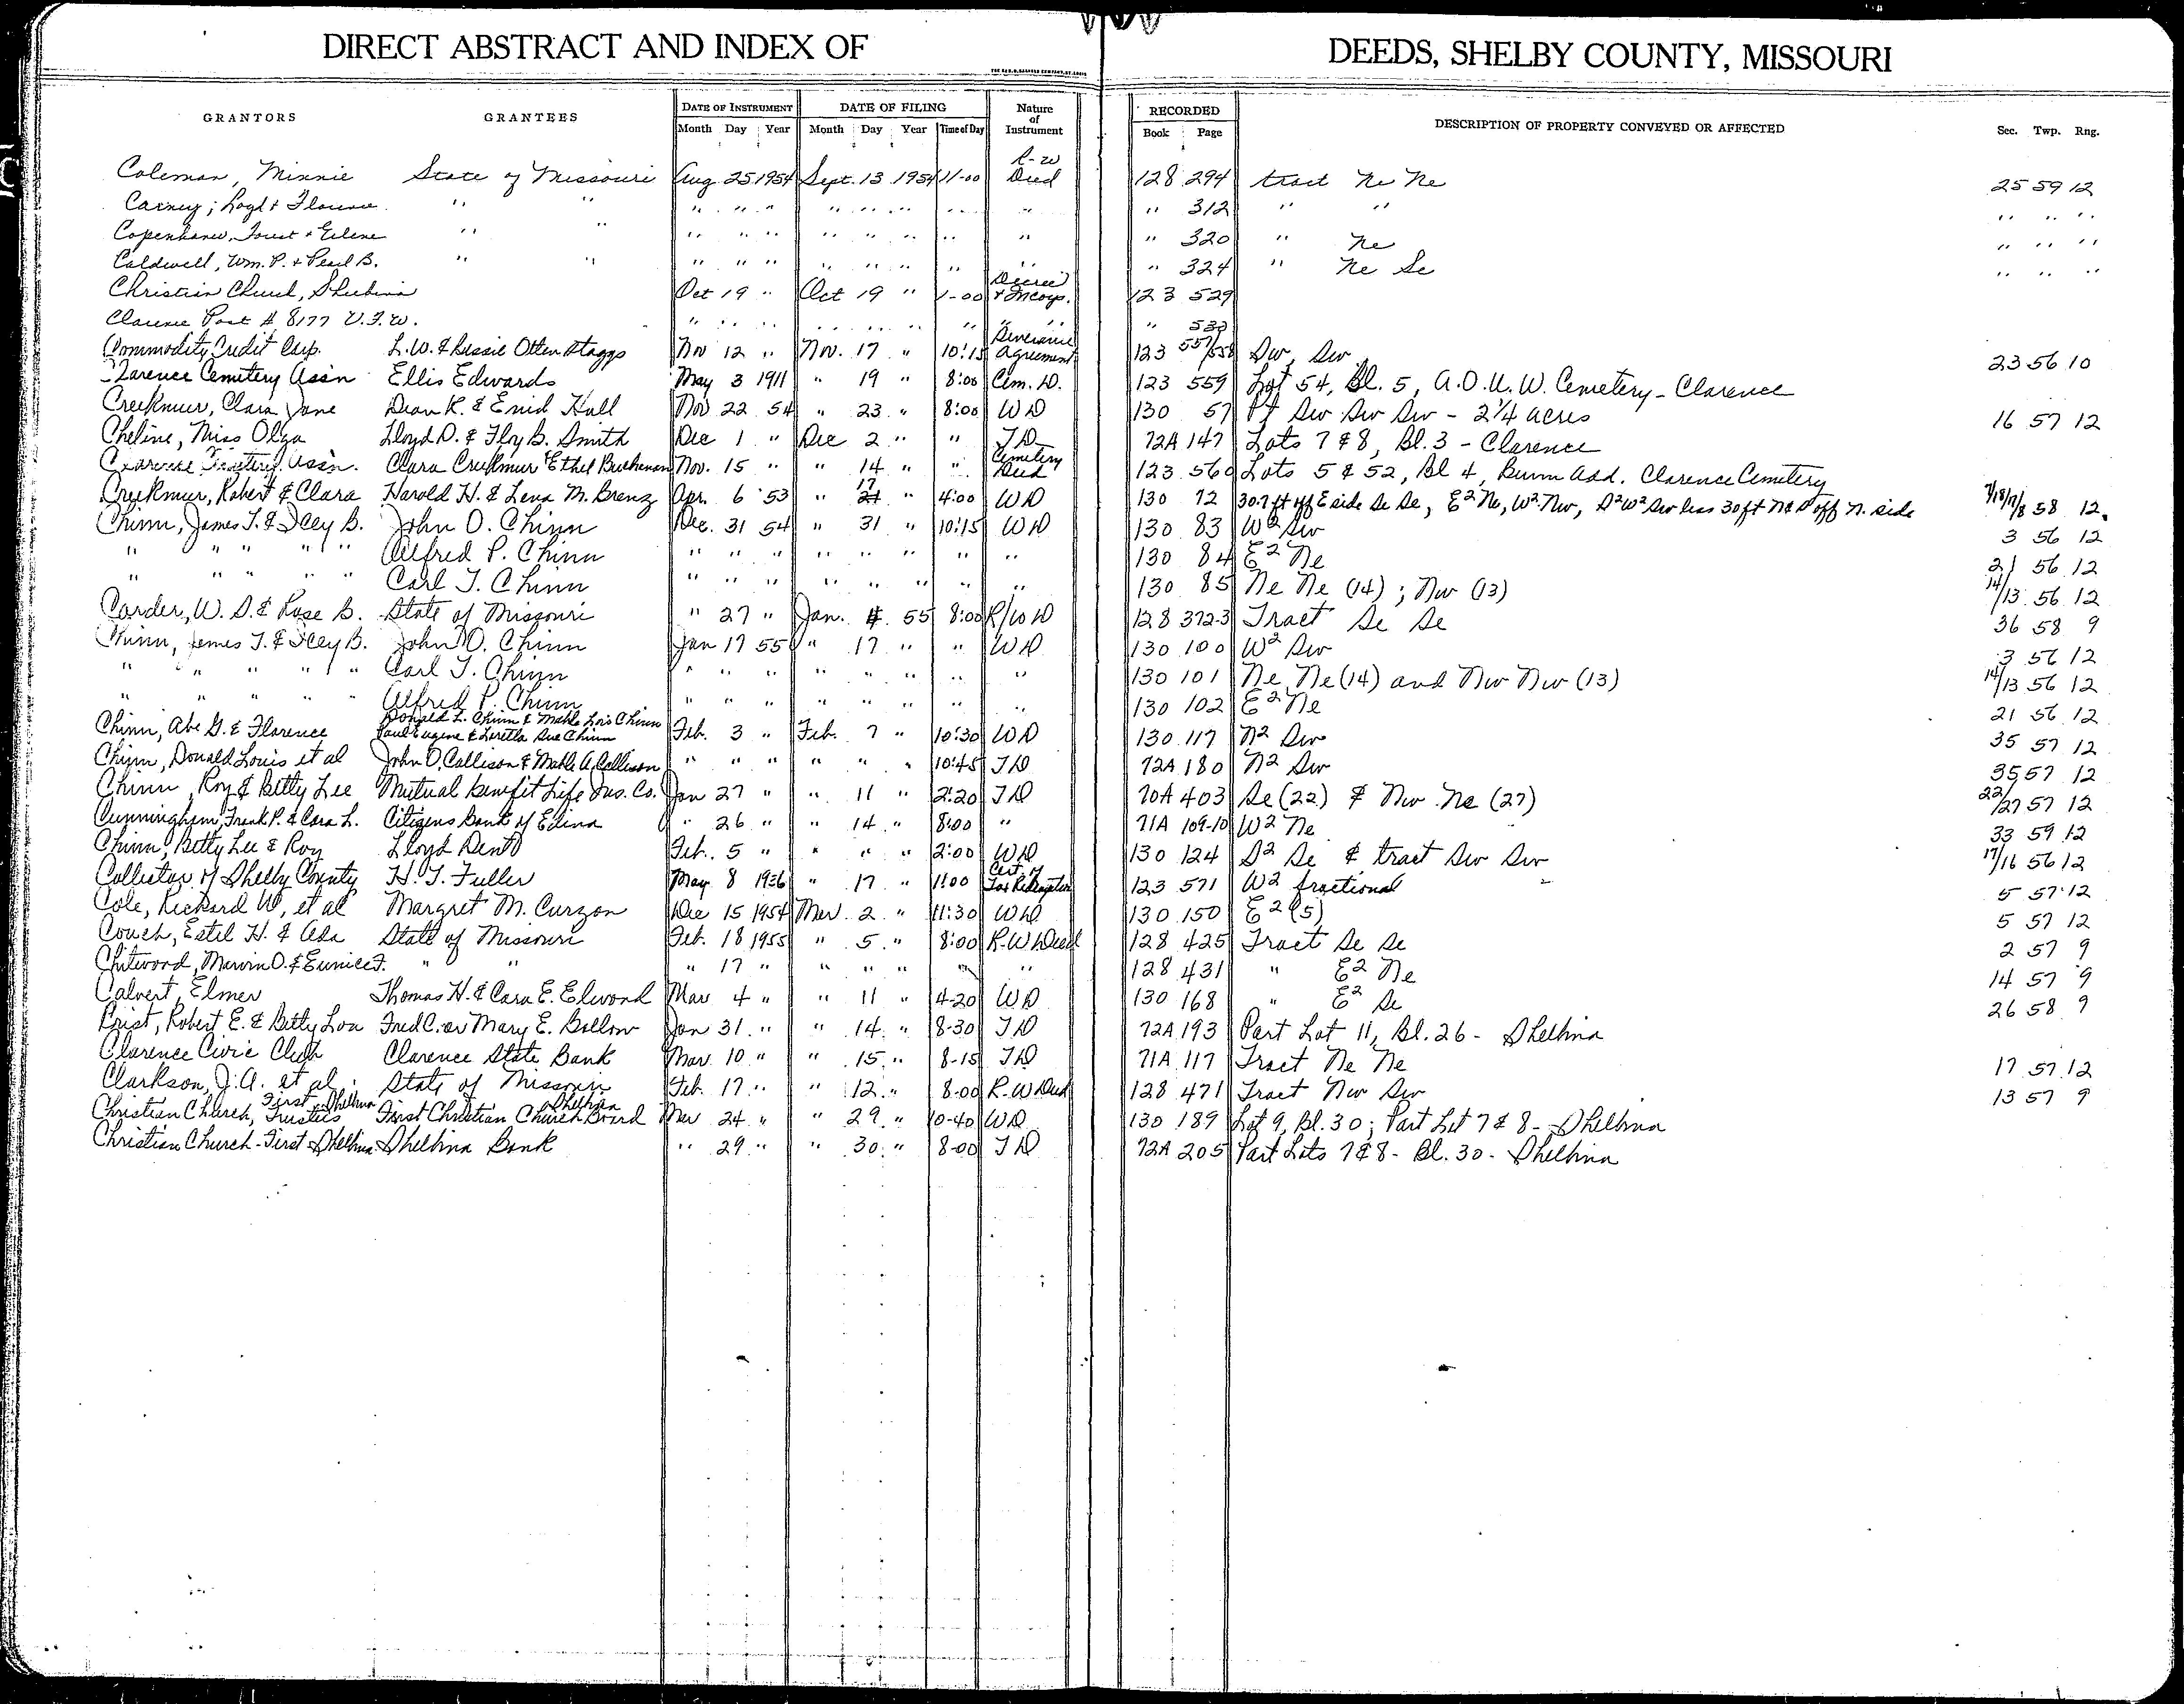 DIRECT ABSTRACT AND INDEX OF DEEDS, SHELBY COUNTY, MISSOURI
GRANTORS GRANTEES DATE OF INSTRUMENT DATE OF FILING Nature of Instrument RECORDED DESCRIPTION OF PROPERTY CONVEYED OR AFFECTED Sec. Twp. Rng.
Month Day Year Month Day Year Time of Day Book Page
Coleman, Minnie State of Missouri Aug 25 1954 Sept. 13 1954 11-00 R-W Deed 128 294 tract Ne Ne 25 59 12
Carney, Loyd & Florence " " " " " " " " " " " 312 " " " " "
Copenhaver, Forest & Eilene " " " " " " " " " " " 320 " Ne " " "
Caldwell, Wm. P. & Pearl B. " " " " " " " " " " " 324 " Ne Se " " "
Christian Church, Shelbina Oct 19 " Oct 19 " 1-00 Decree & Incorp. 123 529
Clarence Post # 8177 V.F.W. " " " " " " " " " " 530
Commodity Credit Corp. L.W. & Bessie Otten Staggs Nov 12 " Nov. 17 " 10:15 Severance Agreement 123 557/558 Sw Sw 23 56 10
Clarence Cemetery Ass'n Ellis Edwards May 3 1911 " 19 " 8:00 Cem. D. 123 559 Lot 54, Bl. 5, A.O.U.W. Cemetery - Clarence
Creekmur, Clara Jane Dean R. & Enid Hall Nov 22 54 " 23 " 8:00 WD 130 57 Pt Sw Sw Sw - 2¼ acres 16 57 12
Cheline, Miss Olga Lloyd D. & Floy B. Smith Dec 1 " Dec 2 " " TD 72A 147 Lots 7 & 8, Bl. 3 - Clarence
Clarence Cemetery Assn. Clara Creekmur Ethel Buchanan Nov. 15 " " 14 " " Cemetery Deed 123 560 Lots 5 & 52, Bl 4, Bunn Add. Clarence Cemetery
Creekmur, Robert & Clara Harold H. & Lena M. Brenz Apr. 6 '53 " 17 " 4:00 WD 130 72 30.7 ft off E side Se Se, E² Ne, W² Nw, S²W² Sw less 30 ft off N. side 7/18/17/8 58 12
Chinn, James T. & Icey B. John O. Chinn Dec. 31 54 " 31 " 10:15 WD 130 83 W² Sw 3 56 12
" " " " " Alfred P. Chinn " " " " " " " " 130 84 E² Ne 21 56 12
" " " " " Carl T. Chinn " " " " " " " " 130 85 Ne Ne (14) ; Nw (13) 14/13 56 12
Carder, W. S. & Rose B. State of Missouri " 27 " Jan. 4 55 8:00 R/W D 128 372-3 Tract Se Se 36 58 9
Chinn, James T. & Icey B. John O. Chinn Jan 17 55 " 17 " " WD 130 100 W² Sw 3 56 12
" " " " " Carl T. Chinn " " " " " " " " 130 101 Ne Ne (14) and Nw Nw (13) 14/13 56 12
" " " " " Alfred P. Chinn " " " " " " " " 130 102 E² Ne 21 56 12
Chinn, Abe G. & Florence Donald L. Chinn & Mable Lois Chinn Paul Eugene & Loretta Sue Chinn Feb. 3 " Feb. 7 " 10:30 WD 130 117 N² Sw 35 57 12
Chinn, Donald Louis et al John O. Callison & Mable A. Callison " " " " " " 10:45 TD 72A 180 N² Sw 35 57 12
Chinn, Roy & Betty Lee Mutual Benefit Life Ins. Co. Jan 27 " " 11 " 2:20 TD 70A 403 Se (22) & Nw Ne (27) 22/27 57 12
Cunningham, Frank P. & Cora L. Citizens Bank of Edina " 26 " " 14 " 8:00 " 71A 109-10 W² Ne 33 59 12
Chinn, Betty Lee & Roy Lloyd Dent Feb. 5 " " " " 2:00 WD 130 124 S² Se & tract Sw Sw 17/16 56 12
Collector of Shelby County H. T. Fuller May 8 1936 " 17 " 1:00 Cert. of Tax Redemption 123 571 W² fractional 5 57 12
Cole, Richard W., et al Margret M. Curzon Dec 15 1954 Mar. 2 " 11:30 WD 130 150 E² (5) 5 57 12
Couch, Estil H. & Ada State of Missouri Feb. 18 1955 " 5 " 8:00 R-W Deed 128 425 Tract Se Se 2 57 9
Chitwood, Marvin O. & Eunice F. " " " 17 " " " " " " 128 431 " E² Ne 14 57 9
Calvert, Elmer Thomas H. & Cara E. Elwood Mar 4 " " 11 " 4-20 WD 130 168 " E² Se 26 58 9
Crist, Robert E. & Betty Lou Fred C. or Mary E. Bollow Jan 31 " " 14 " 8-30 TD 72A 193 Part Lot 11, Bl. 26 - Shelbina
Clarence Civic Club Clarence State Bank Mar. 10 " " 15 " 8-15 TD 71A 117 Tract Ne Ne 17 57 12
Clarkson, J. A. et al State of Missouri Feb. 17 " " 12 " 8-00 R-W Deed 128 471 Tract Nw Sw 13 57 9
Christian Church, First - Shelbina Trustees First Christian Church Board Shelbina Mar 24 " " 29 " 10-40 WD 130 189 Lot 9, Bl. 30; Part Lot 7 & 8 - Shelbina
Christian Church - First Shelbina Shelbina Bank " 29 " " 30 " 8-00 TD 72A 205 Part Lots 7 & 8 - Bl. 30 - Shelbina